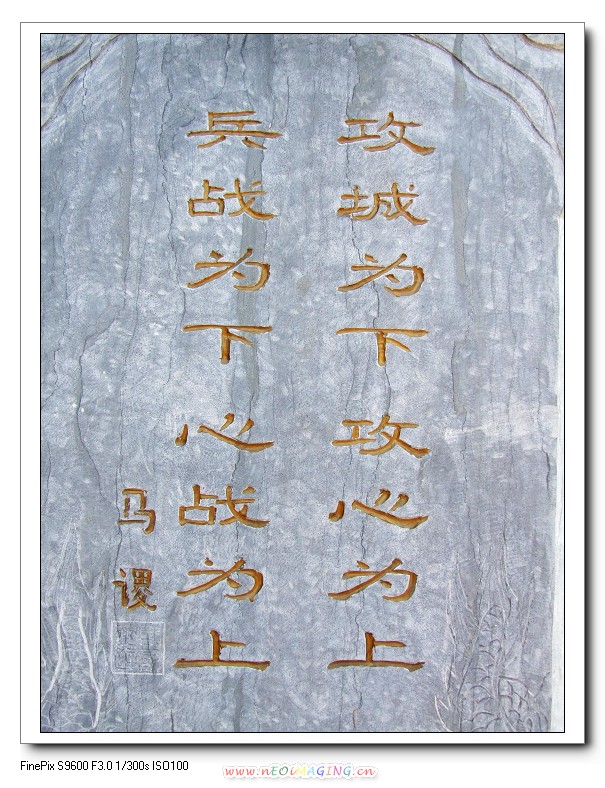 攻城为下攻心为上
兵战为下心战为上
马谡
FinePix S9600 F3.0 1/300s ISO100
www.nEOiMAGING.cn